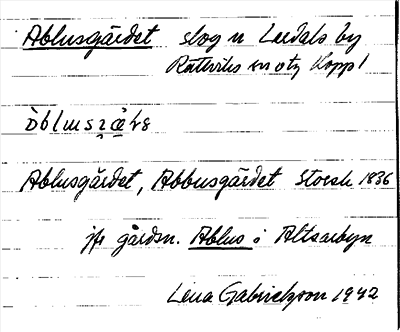 Ablusgärdet skog n Leedals by
Rättviks sn otz Kopp l
Ablusgärdet, Abbusgärdet Storsk 1836
jfr gårdsn. Ablus i Altsarbyn
Lena Gabrielsson 1942